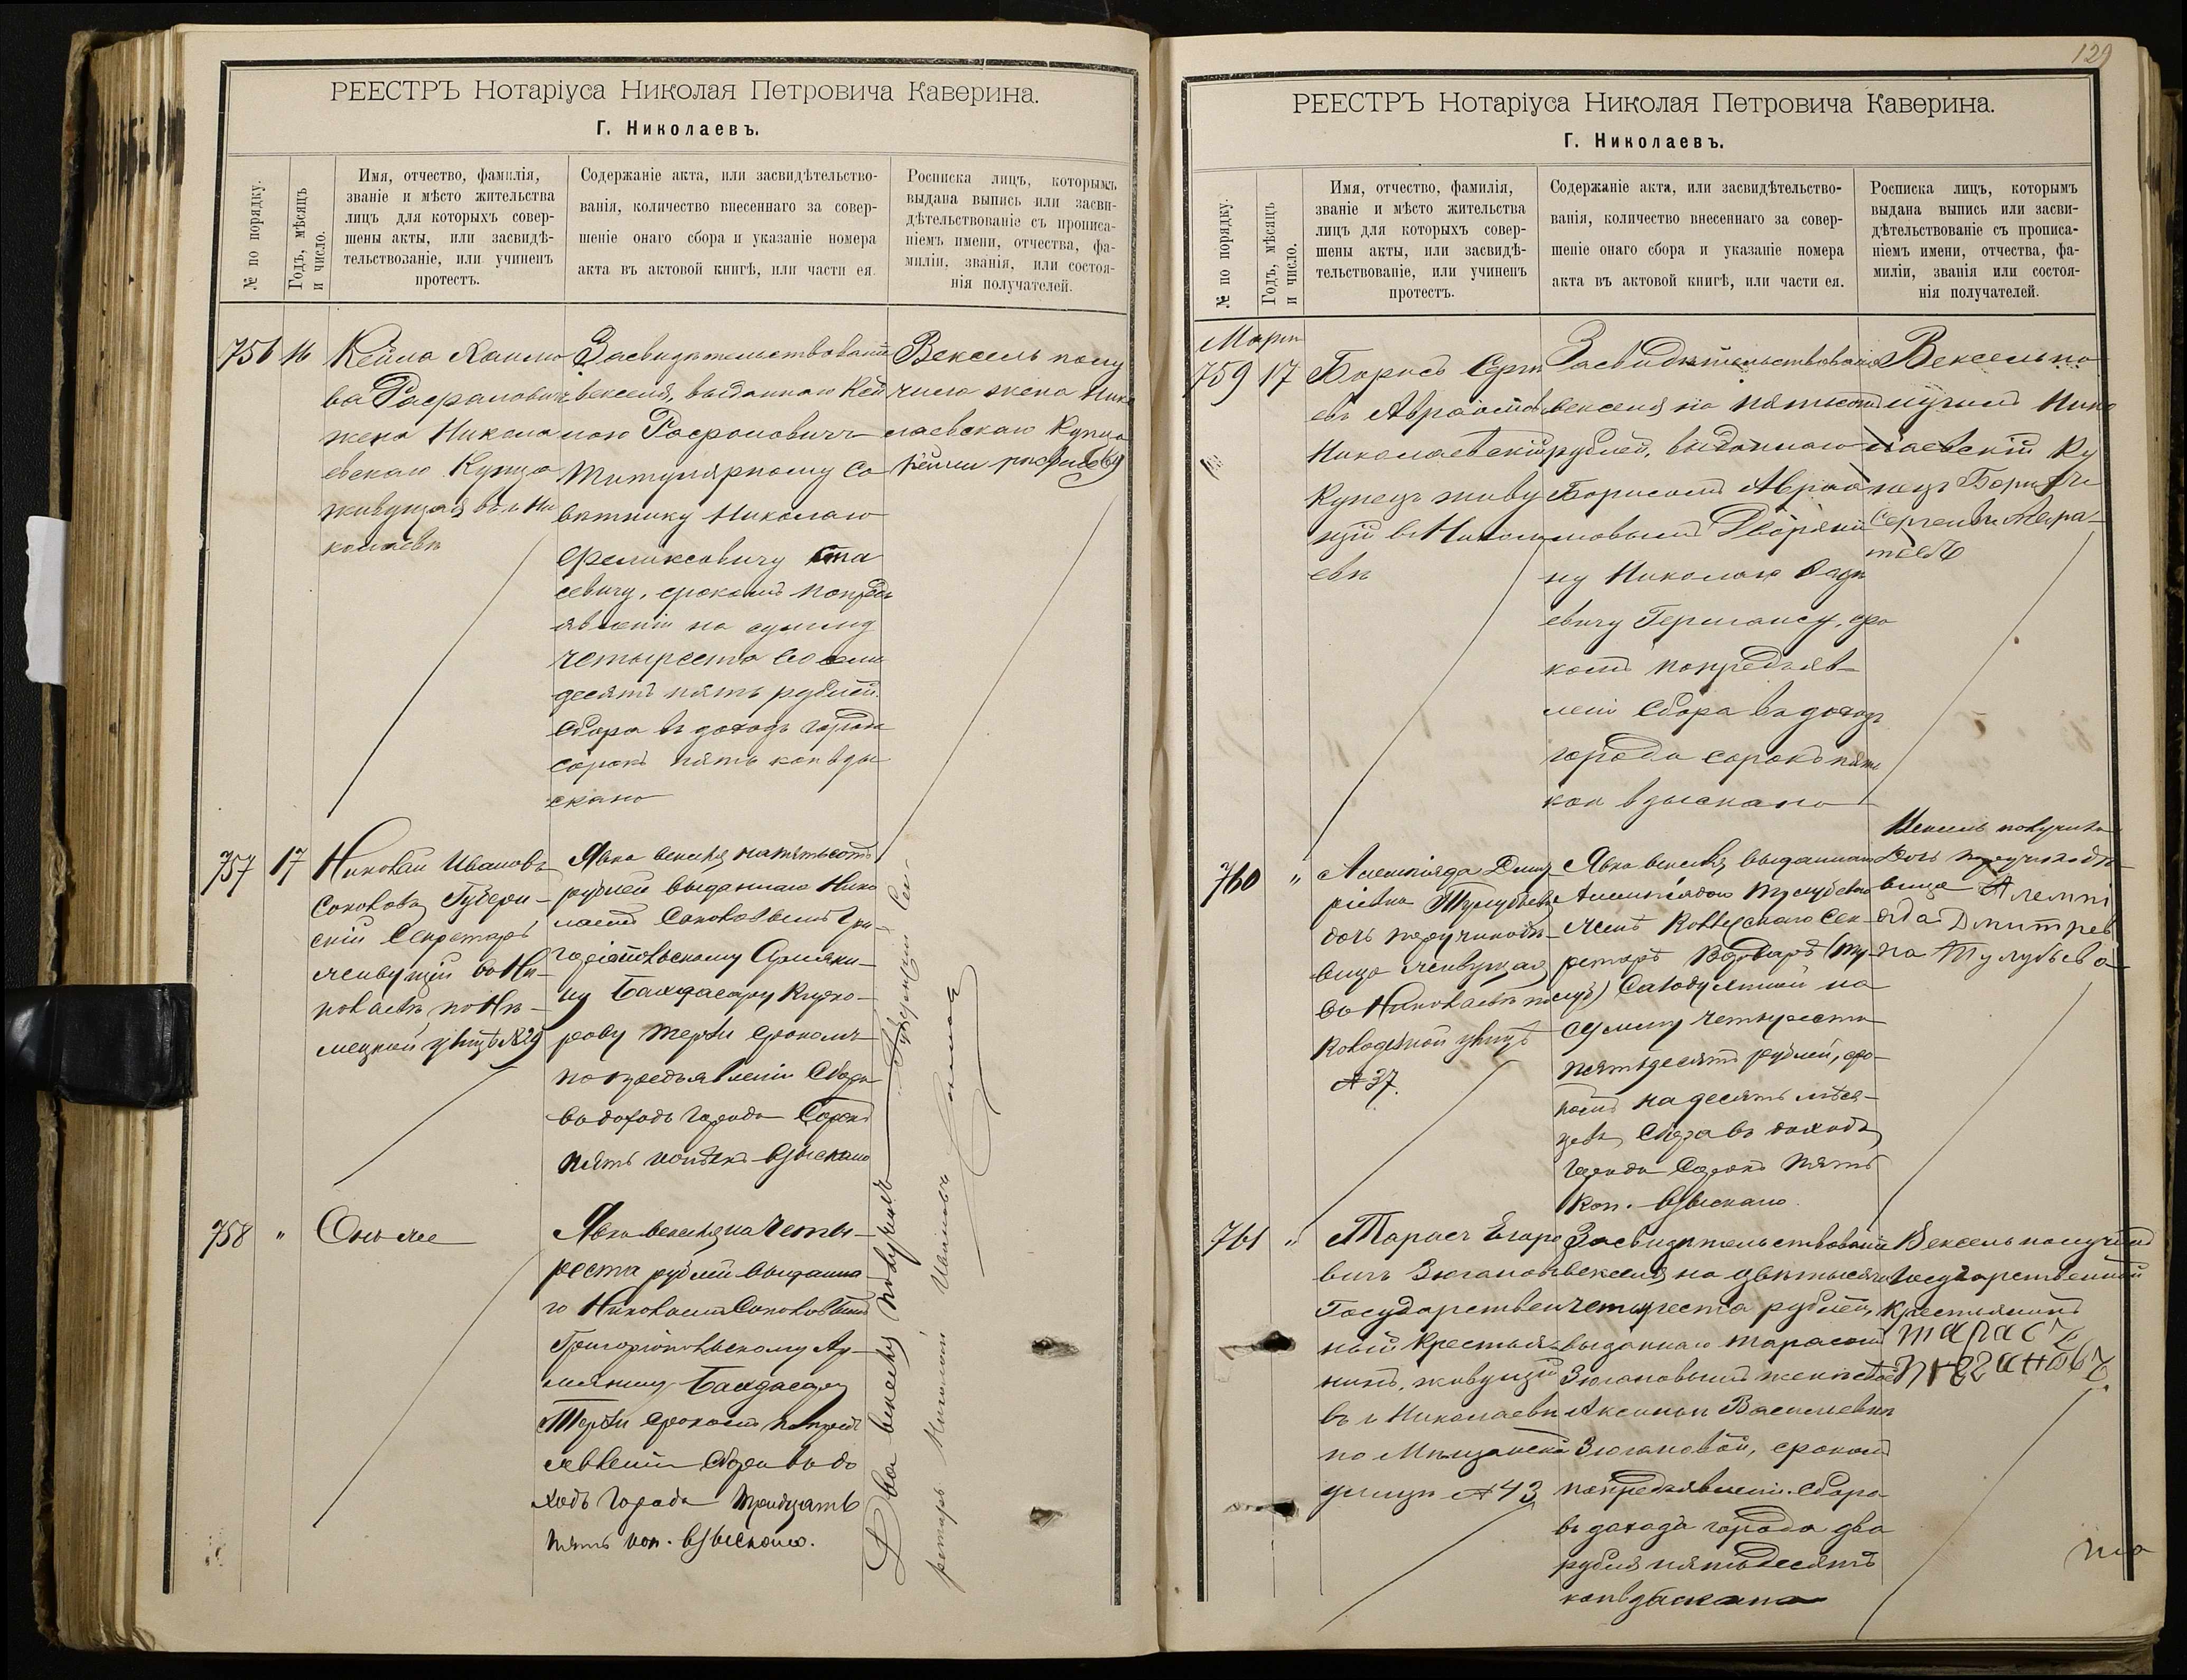 РЕЕСТРЪ Нотаріуса Николая Петровича Каверина.
Г. Николаевъ.
№ по порядку.
Годъ, мѣсяцъ
и число.
Имя, отчество, фамилія,
званіе и мѣсто жительства
лицъ для которыхъ совер-
шены акты, или засвидѣ-
тельствованіе, или учиненъ
протестъ.
Содержаніе акта, или засвидѣтельство-
ванія, количество внесеннаго за совер-
шеніе онаго сбора и указаніе номера
акта въ актовой книгѣ, или части ея.
Росписка лицъ, которымъ
выдана выпись или засви-
дѣтельствованіе съ прописа-
ніемъ имени, отчества, фа-
миліи, званія, или состоя-
нія получателей.
756
16
Кейла Хаимо
ва Рафалович
жена Никола
евскаго Купца
живущая въ г. Ни
колаевѣ
Засвидѣтельствованіе
векселя, выданнаго Кей
лою Рафалович
Титулярному Со
вѣтнику Николаю
Феликсовичу
севичу, срокомъ попредъ
явленіи на сумму
четыреста восемь
десятъ пять рублей.
Сбора въ доходъ города
сорокъ пять коп взы
скано
Вексель полу
чила жена Нико
лаевскаго Купца
757
17
Николай Ивановъ
Соколовъ Губерн-
скій Секретарь
живущій въ Ни-
колаевѣ по Нѣ-
мецкой улицѣ №29
Явка векселя на пятьсотъ
рублей выданнаго Нико
лаемъ Соколовымъ Гри-
горіопольскому Армяни-
ну Балдасару
рову Терзи срокомъ
по предъявленіи Сбора
въ доходъ города Сорокъ
пять копѣекъ взыскано
758
"
Онъ же
Явка векселя на четы-
реста рублей выданна
го Николаемъ Соколовымъ
Григоріопольскому Ар-
мянину Балдасару
Терзи срокомъ по предъ
явленіи Сбора въ до
ходъ города тридцать
пять коп. взыскано.
Два векселя получилъ Губернскій Сек-
ретарь Николай Ивановъ Соколовъ
129
РЕЕСТРЪ Нотаріуса Николая Петровича Каверина.
Г. Николаевъ.
№ по порядку.
Годъ, мѣсяцъ
и число.
Имя, отчество, фамилія,
званіе и мѣсто жительства
лицъ для которыхъ совер-
шены акты, или засвидѣ-
тельствованіе, или учиненъ
протестъ.
Содержаніе акта, или засвидѣтельство-
ванія, количество внесеннаго за совер-
шеніе онаго сбора и указаніе номера
акта въ актовой книгѣ, или части ея.
Росписка лицъ, которымъ
выдана выпись или засви-
дѣтельствованіе съ прописа-
ніемъ имени, отчества, фа-
миліи, званія или состоя-
нія получателей.
Мартъ
759
17
Борисъ Серге
евъ
Николаевскій
Купецъ живу
щій въ Никола
евѣ
Засвидѣтельствованіе
векселя на пятьсотъ
рублей, выданнаго
Борисомъ
Дворяни
ну Николаю
евичу Германсу, сро
комъ попредъяв-
леніи Сбора въ доходъ
города сорокъ пять
коп взыскано
Вексель по
лучилъ Нико
лаевскій Ку
пецъ Борисъ
760
"
ріевна Тулубьева
дочь поручика дѣ-
вица живущая
въ Николаевѣ по
Колодезной улицѣ
№ 37.
Явка векселя, выданнаго
Тулубьевой
на
сумму четыреста
пятьдесятъ рублей, сро-
комъ на десять мѣся-
цевъ, Сбора въ доходъ
города Сорокъ пять
коп. взыскано.
Вексель получила
Дочь поручика дѣ-
вица
Дмитрев
на Тулубьева
761
"
Тарасъ Егоро
вичъ Зюгановъ
Государствен
ный крестья
нинъ, живущій
въ г Николаевѣ
по Мѣщанской
улицѣ № 43
Засвидѣтельствованіе
векселя на двѣ тысячи
четыреста рублей,
выданнаго Тарасомъ
Зюгановымъ женѣ своей
Аксиньи Васильевнѣ
Зюгановой, срокомъ
попредъявленіи. Сбора
въ доходъ города два
рубля пятьдесятъ
коп взыскано
Вексель получилъ
Государственный
Крестьянинъ
тарасъ